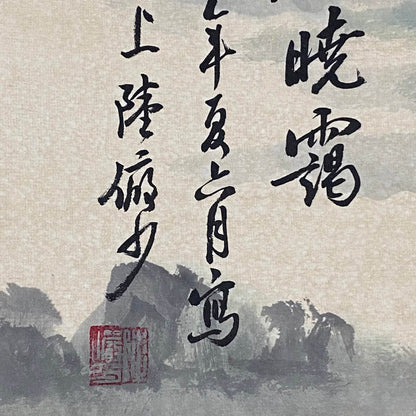 曉靄
年夏六月寫
上陸儼少